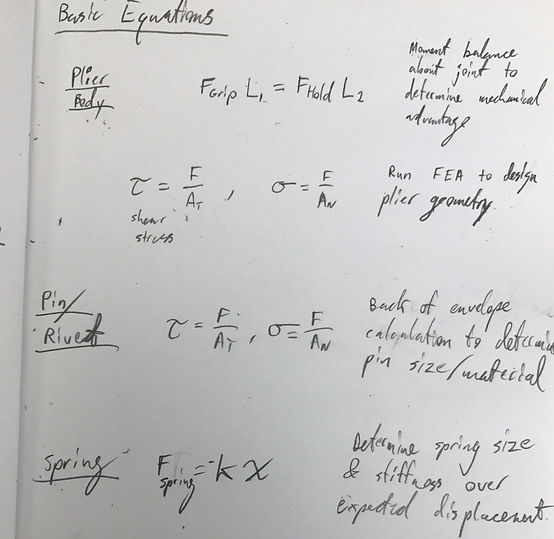 Basic Equations
Plier
Body
F Grip L₁ = F Hold L₂
Moment balance
about joint to
determine mechanical
advantage
τ = F/A_T , σ = F/A_N
shear
stress
Run FEA to design
plier geometry.
Pin/
Rivet
τ = F/A_T , σ = F/A_N
Back of envelope
calculation to determin
pin size/material
Spring
F spring = -k x
Determine spring size
& stiffness over
expected displacement.